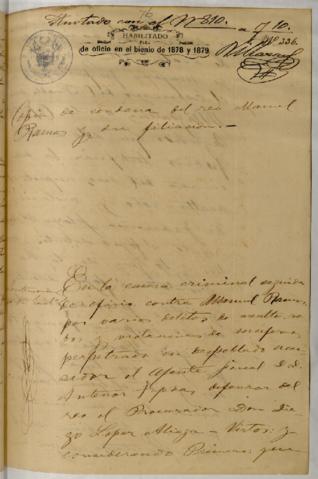 76
Anotado con el Nº 310. a f 10.
HABILITADO
PARA
de oficio en el bienio de 1878 y 1879
Nº 336.
Copia de condena del reo Manuel
Ramos y su filiacion.
En la causa criminal seguida
de oficio contra Manuel Ramos
por varios delitos de asalto, ro-
bos, y matanzas de
perpetrados en despoblado acu-
sador el Ajente fiscal D. D.
Antenor y defensor del
reo el Procurador Don Die-
go Lopez Aliaga - Vistos: y
considerando Primero: que